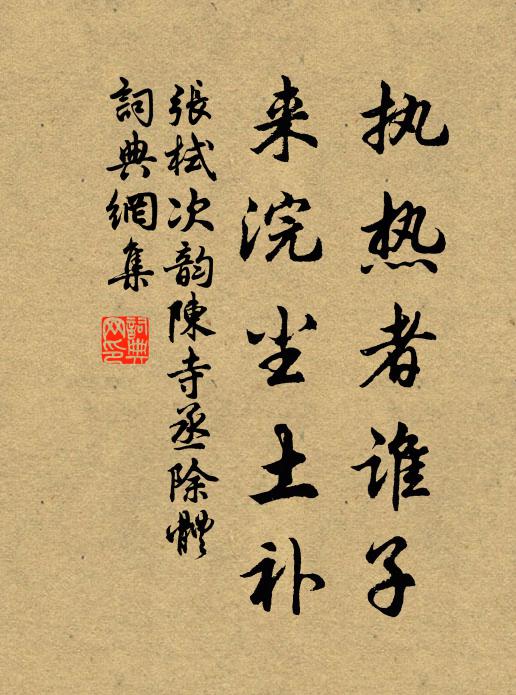 执热者谁子
来浣尘土补
張栻次韵陳寺丞除體
詞典網集
詞典
网印